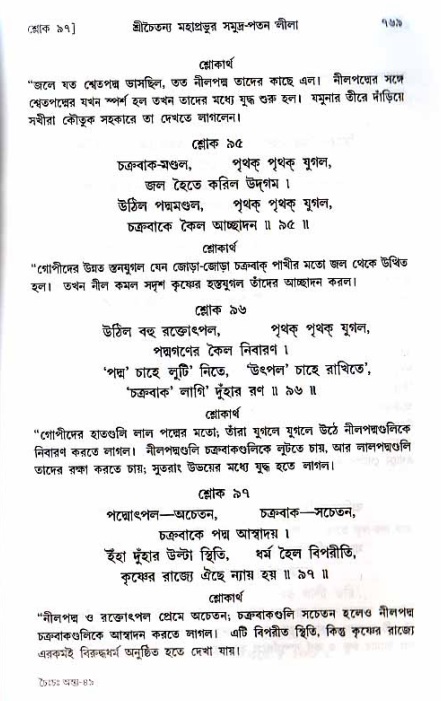 শ্লোক ৯৭]	শ্রীচৈতন্য মহাপ্রভুর সমুদ্র-পতন লীলা	৭৬৯
শ্লোকার্থ
"জলে যত শ্বেতপদ্ম ভাসছিল, তত নীলপদ্ম তাদের কাছে এল। নীলপদ্মের সঙ্গে
শ্বেতপদ্মের যখন স্পর্শ হল তখন তাদের মধ্যে যুদ্ধ শুরু হল। যমুনার তীরে দাঁড়িয়ে
সখীরা কৌতুক সহকারে তা দেখতে লাগলেন।
শ্লোক ৯৫
চক্রবাক-মণ্ডল, পৃথক্ পৃথক্ যুগল,
জল হৈতে করিল উদ্‌গম।
উঠিল পদ্মমণ্ডল, পৃথক্ পৃথক্ যুগল,
চক্রবাকে কৈল আচ্ছাদন ॥ ৯৫ ॥
শ্লোকার্থ
"গোপীদের উন্নত স্তনযুগল যেন জোড়া-জোড়া চক্রবাক্ পাখীর মতো জল থেকে উত্থিত
হল। তখন নীল কমল সদৃশ কৃষ্ণের হস্তযুগল তাঁদের আচ্ছাদন করল।
শ্লোক ৯৬
উঠিল বহু রক্তোৎপল, পৃথক্ পৃথক্ যুগল,
পদ্মগণের কৈল নিবারণ।
'পদ্ম' চাহে লুটি' নিতে, 'উৎপল' চাহে রাখিতে',
'চক্রবাক' লাগি' দুঁহার রণ ॥ ৯৬ ॥
শ্লোকার্থ
"গোপীদের হাতগুলি লাল পদ্মের মতো; তাঁরা যুগলে যুগলে উঠে নীলপদ্মগুলিকে
নিবারণ করতে লাগল। নীলপদ্মগুলি চক্রবাকগুলিকে লুটতে চায়, আর লালপদ্মগুলি
তাদের রক্ষা করতে চায়; সুতরাং উভয়ের মধ্যে যুদ্ধ হতে লাগল।
শ্লোক ৯৭
পদ্মোৎপল—অচেতন, চক্রবাক—সচেতন,
চক্রবাকে পদ্ম আস্বাদয়।
ইঁহা দুঁহার উল্টা স্থিতি, ধর্ম হৈল বিপরীতি,
কৃষ্ণের রাজ্যে ঐছে ন্যায় হয় ॥ ৯৭ ॥
শ্লোকার্থ
"নীলপদ্ম ও রক্তোৎপল প্রেমে অচেতন; চক্রবাকগুলি সচেতন হলেও নীলপদ্ম
চক্রবাকগুলিকে আস্বাদন করতে লাগল। এটি বিপরীত স্থিতি, কিন্তু কৃষ্ণের রাজ্যে
এরকমই বিরুদ্ধধর্ম অনুষ্ঠিত হতে দেখা যায়।
চৈঃচঃ অন্ত্য-৪৯